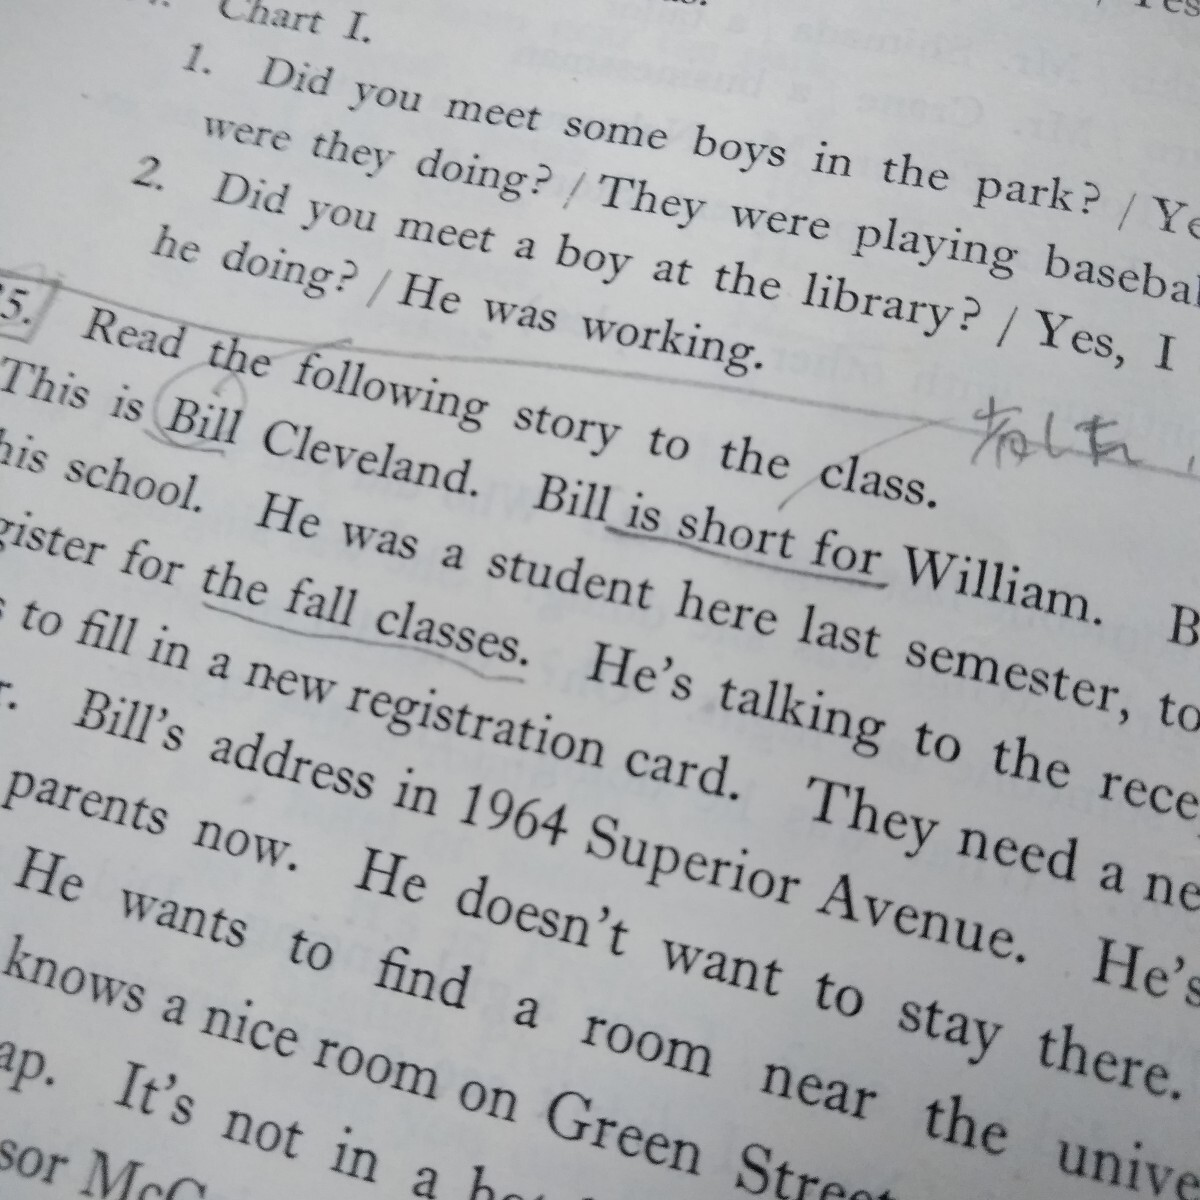 Chart I.
1. Did you meet some boys in the park? / Ye
were they doing? / They were playing basebal
2. Did you meet a boy at the library? / Yes, I
he doing? / He was working.
5. Read the following story to the class.
This is Bill Cleveland. Bill is short for William. B
his school. He was a student here last semester, to
gister for the fall classes. He's talking to the rece
s to fill in a new registration card. They need a ne
r. Bill's address in 1964 Superior Avenue. He's
parents now. He doesn't want to stay there.
He wants to find a room near the unive
knows a nice room on Green Street
ap. It's not in a
sor McC